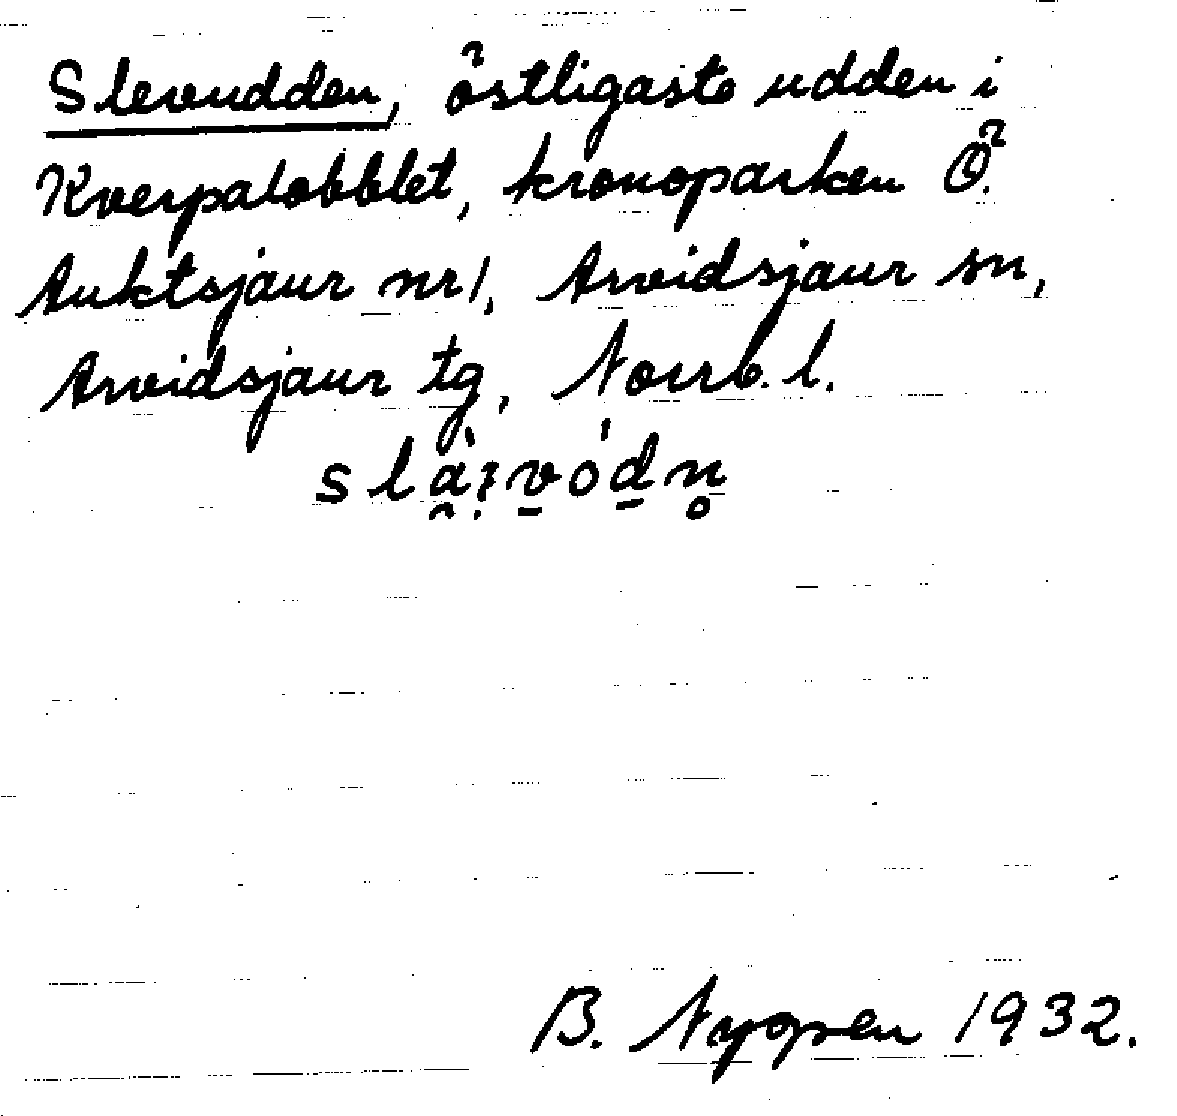 Slevudden, östligaste udden i
Kverpalobblet, kronoparken Ö.
Auktsjaur nr 1, Arvidsjaur sn,
Arvidsjaur tg, Norrb. l.
B. Nygren 1932.